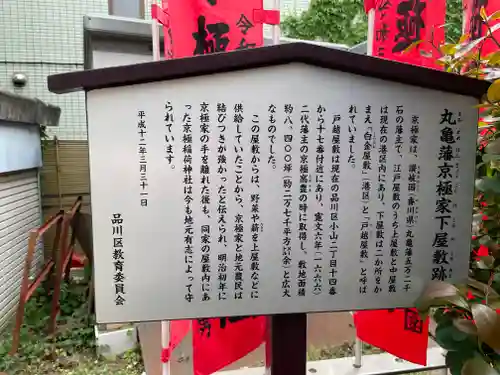 丸亀藩京極家下屋敷跡
京極家は、讃岐国（香川県）丸亀藩五万二千
石の藩主で、江戸屋敷のうち上屋敷と中屋敷
は現在の港区内にあり、下屋敷は二か所をか
まえ「白金屋敷」（港区）と「戸越屋敷」と呼ば
れていました。
戸越屋敷は現在の品川区小山二丁目十四番
から十七番付近にあり、寛文六年（一六六六）
二代藩主の京極高豊が拝領し、面積
約八、四〇〇坪（約二万七千平方㍍余）と広大
なものでした。
この屋敷からは、野菜や薪を上屋敷などに
供給していたことから、京極家と地元農民の
結びつきが強かったと伝えられ、明治初年に
京極家の手を離れた後も、同家の屋敷内にあ
った京極稲荷神社は今も地元有志によって守
られています。
平成十二年三月三十一日
品川区教育委員会
令和
極